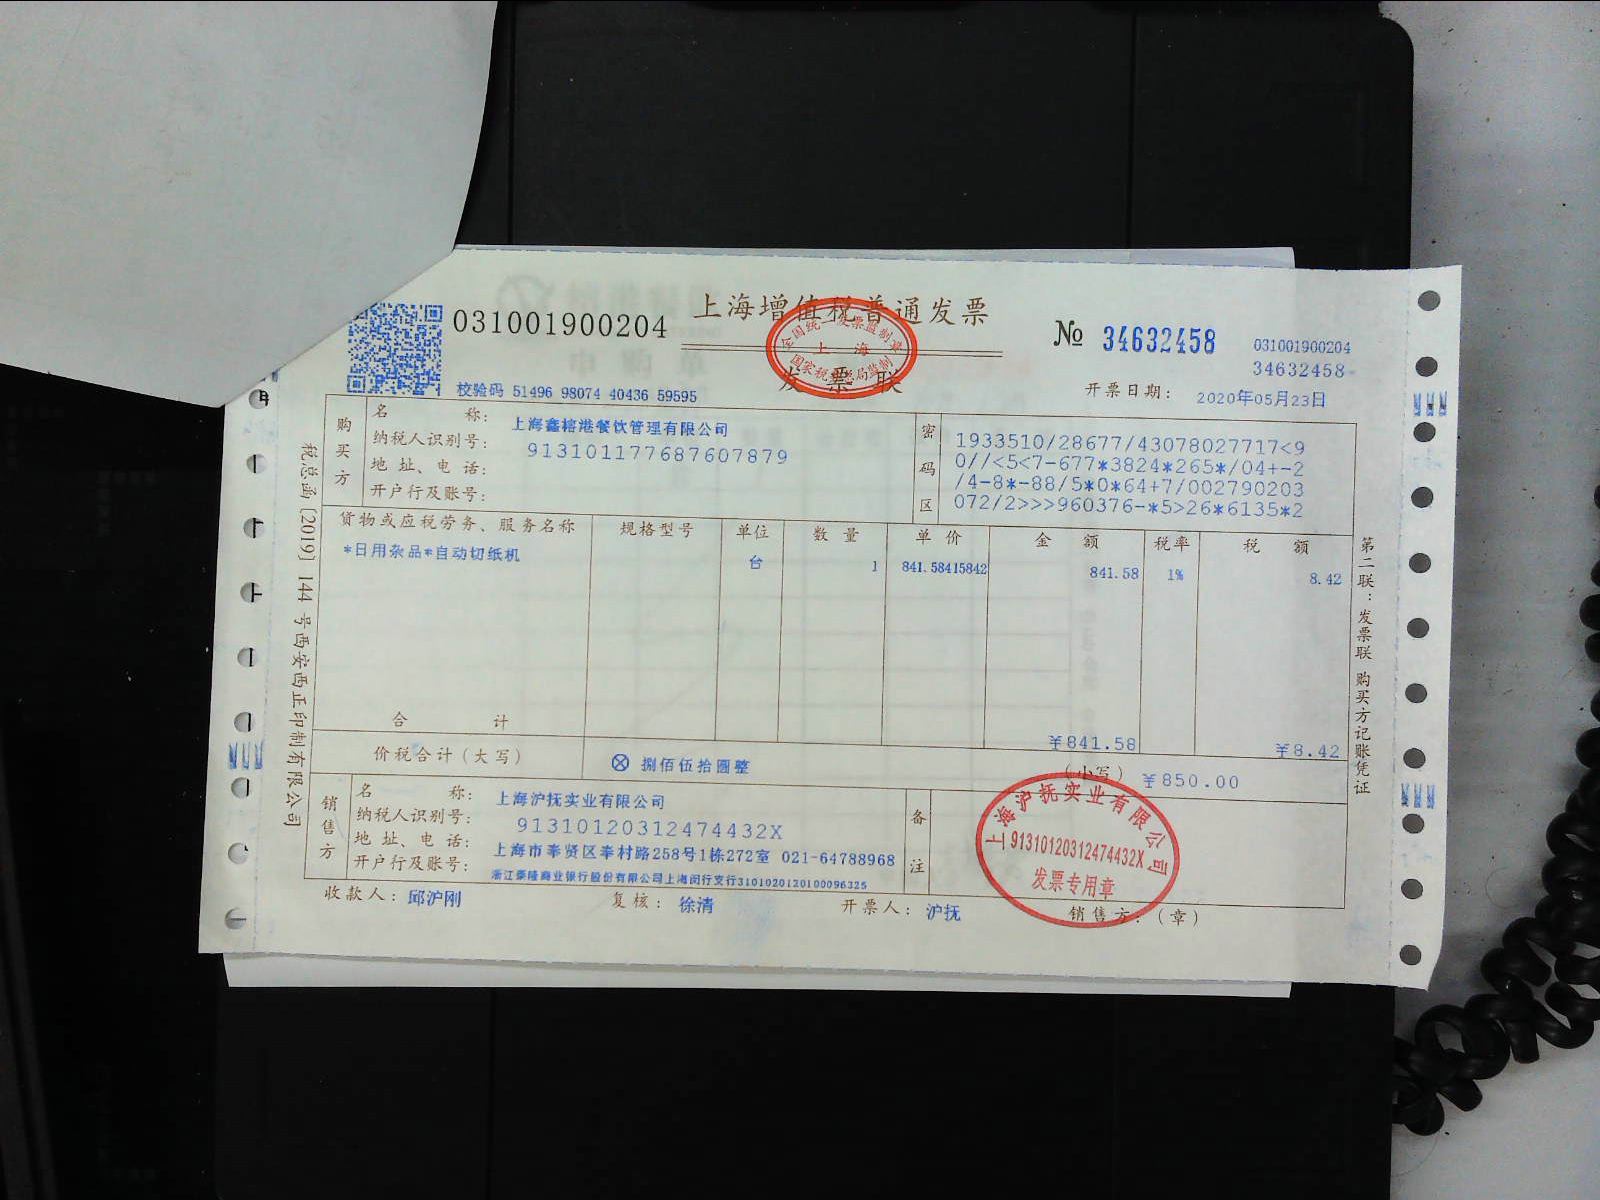 上海增值税普通发票
031001900204
全国统一发票监制章
上海
国家税务总局监制
发票联
№ 34632458
031001900204
34632458
校验码 51496 98074 40436 59595
开票日期: 2020年05月23日
购买方
名称: 上海鑫榕港餐饮管理有限公司
纳税人识别号: 913101177687607879
地址、电话:
开户行及账号:
密码区
1933510/28677/43078027717<9
0//<5<7-677*3824*265*/04+-2
/4-8*-88/5*0*64+7/002790203
072/2>>>960376-*5>26*6135*2
货物或应税劳务、服务名称 规格型号 单位 数量 单价 金额 税率 税额
*日用杂品*自动切纸机 台 1 841.58415842 841.58 1% 8.42
合计 ¥841.58 ¥8.42
价税合计(大写) ⊗ 捌佰伍拾圆整 (小写) ¥850.00
销售方
名称: 上海沪抚实业有限公司
纳税人识别号: 91310120312474432X
地址、电话: 上海市奉贤区奉村路258号1栋272室 021-64788968
开户行及账号: 浙江泰隆商业银行股份有限公司上海闵行支行3101020120100096325
备注
上海沪抚实业有限公司
91310120312474432X
发票专用章
收款人: 邱沪刚 复核: 徐清 开票人: 沪抚 销售方:(章)
税总函[2019]144号西安西正印制有限公司
第二联:发票联 购买方记账凭证